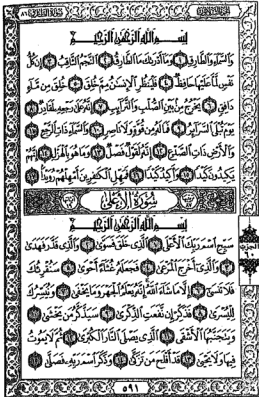 بِسْمِ اللَّهِ الرَّحْمَٰنِ الرَّحِيمِ
وَالسَّمَاءِ وَالطَّارِقِ ١ وَمَا أَدْرَاكَ مَا الطَّارِقُ ٢ النَّجْمُ الثَّاقِبُ ٣ إِن كُلُّ
نَفْسٍ لَّمَّا عَلَيْهَا حَافِظٌ ٤ فَلْيَنظُرِ الْإِنسَانُ مِمَّ خُلِقَ ٥ خُلِقَ مِن مَّاءٍ
دَافِقٍ ٦ يَخْرُجُ مِن بَيْنِ الصُّلْبِ وَالتَّرَائِبِ ٧ إِنَّهُ عَلَىٰ رَجْعِهِ لَقَادِرٌ ٨
يَوْمَ تُبْلَى السَّرَائِرُ ٩ فَمَا لَهُ مِن قُوَّةٍ وَلَا نَاصِرٍ ١٠ وَالسَّمَاءِ ذَاتِ الرَّجْعِ ١١
وَالْأَرْضِ ذَاتِ الصَّدْعِ ١٢ إِنَّهُ لَقَوْلٌ فَصْلٌ ١٣ وَمَا هُوَ بِالْهَزْلِ ١٤ إِنَّهُمْ
يَكِيدُونَ كَيْدًا ١٥ وَأَكِيدُ كَيْدًا ١٦ فَمَهِّلِ الْكَافِرِينَ أَمْهِلْهُمْ رُوَيْدًا ١٧
سُورَةُ الْأَعْلَىٰ
بِسْمِ اللَّهِ الرَّحْمَٰنِ الرَّحِيمِ
سَبِّحِ اسْمَ رَبِّكَ الْأَعْلَى ١ الَّذِي خَلَقَ فَسَوَّىٰ ٢ وَالَّذِي قَدَّرَ فَهَدَىٰ
٣ وَالَّذِي أَخْرَجَ الْمَرْعَىٰ ٤ فَجَعَلَهُ غُثَاءً أَحْوَىٰ ٥ سَنُقْرِئُكَ
فَلَا تَنسَىٰ ٦ إِلَّا مَا شَاءَ اللَّهُ إِنَّهُ يَعْلَمُ الْجَهْرَ وَمَا يَخْفَىٰ ٧ وَنُيَسِّرُكَ
لِلْيُسْرَىٰ ٨ فَذَكِّرْ إِن نَّفَعَتِ الذِّكْرَىٰ ٩ سَيَذَّكَّرُ مَن يَخْشَىٰ ١٠
وَيَتَجَنَّبُهَا الْأَشْقَى ١١ الَّذِي يَصْلَى النَّارَ الْكُبْرَىٰ ١٢ ثُمَّ لَا يَمُوتُ
فِيهَا وَلَا يَحْيَىٰ ١٣ قَدْ أَفْلَحَ مَن تَزَكَّىٰ ١٤ وَذَكَرَ اسْمَ رَبِّهِ فَصَلَّىٰ ١٥
الحزب
٦٠
٥٩١